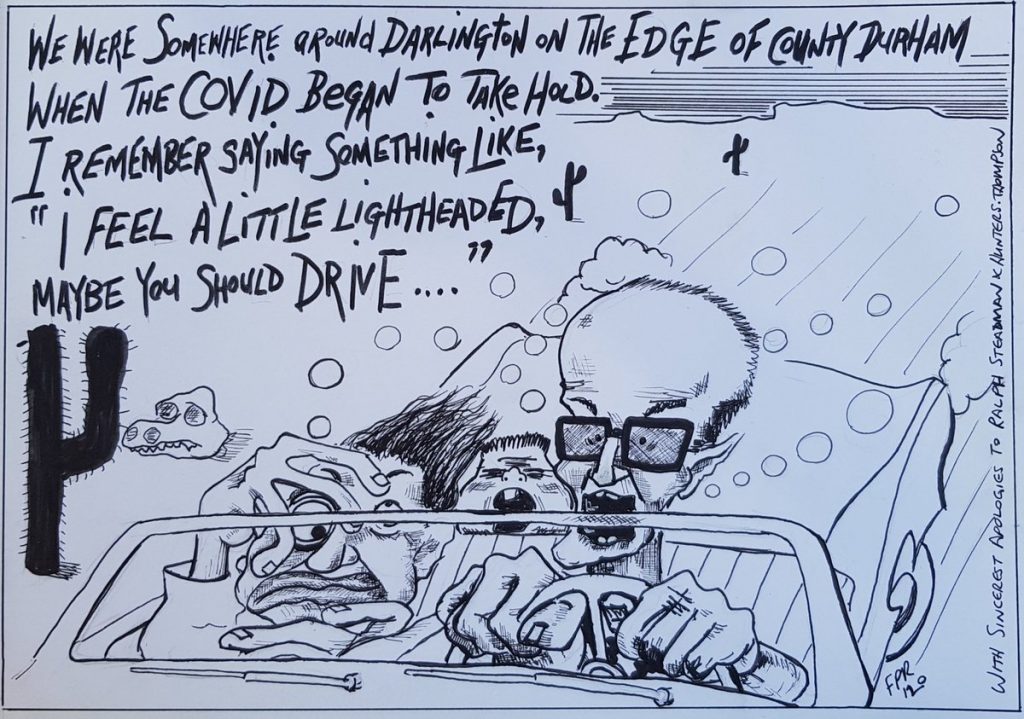 WE WERE SOMEWHERE AROUND DARLINGTON ON THE EDGE OF COUNTY DURHAM
WHEN THE COVID BEGAN TO TAKE HOLD.
I REMEMBER SAYING SOMETHING LIKE,
"I FEEL A LITTLE LIGHTHEADED,
MAYBE YOU SHOULD DRIVE...."
WITH SINCEREST APOLOGIES TO RALPH STEADMAN & HUNTER S. THOMPSON
FPR